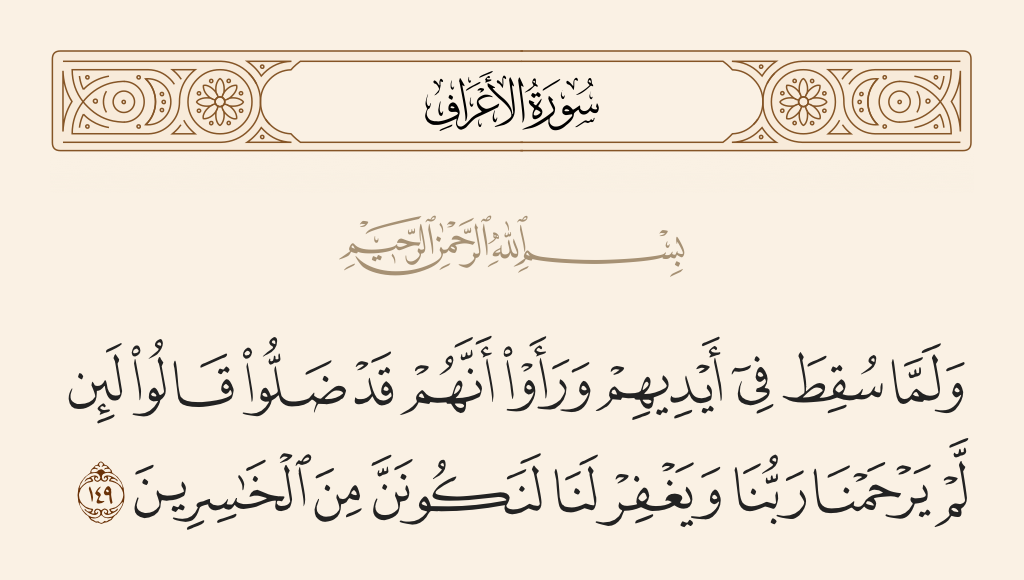 سُورَةُ الأَعْرَافِ
بِسْمِ ٱللَّهِ ٱلرَّحْمَٰنِ ٱلرَّحِيمِ
وَلَمَّا سُقِطَ فِىٓ أَيْدِيهِمْ وَرَأَوْا۟ أَنَّهُمْ قَدْ ضَلُّوا۟ قَالُوا۟ لَئِن
لَّمْ يَرْحَمْنَا رَبُّنَا وَيَغْفِرْ لَنَا لَنَكُونَنَّ مِنَ ٱلْخَـٰسِرِينَ ١٤٩